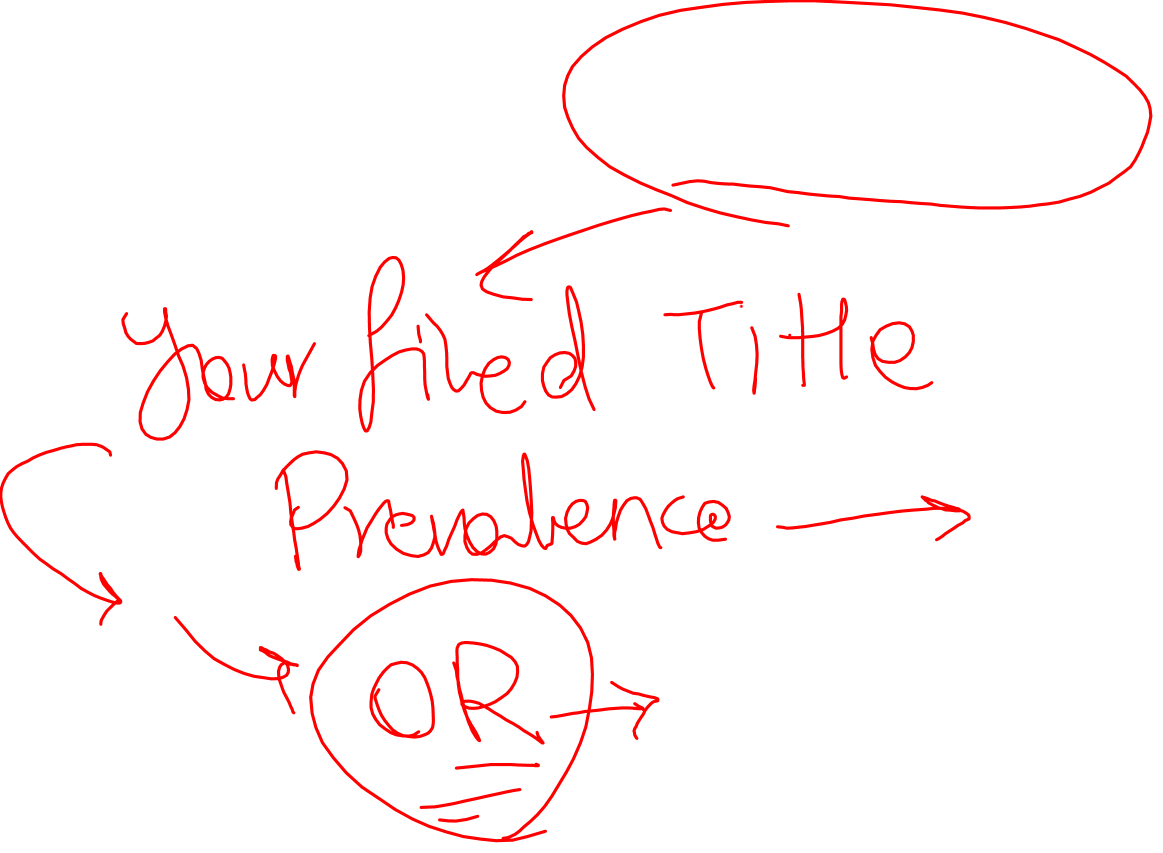 Your fixed Title
Prevalence
OR